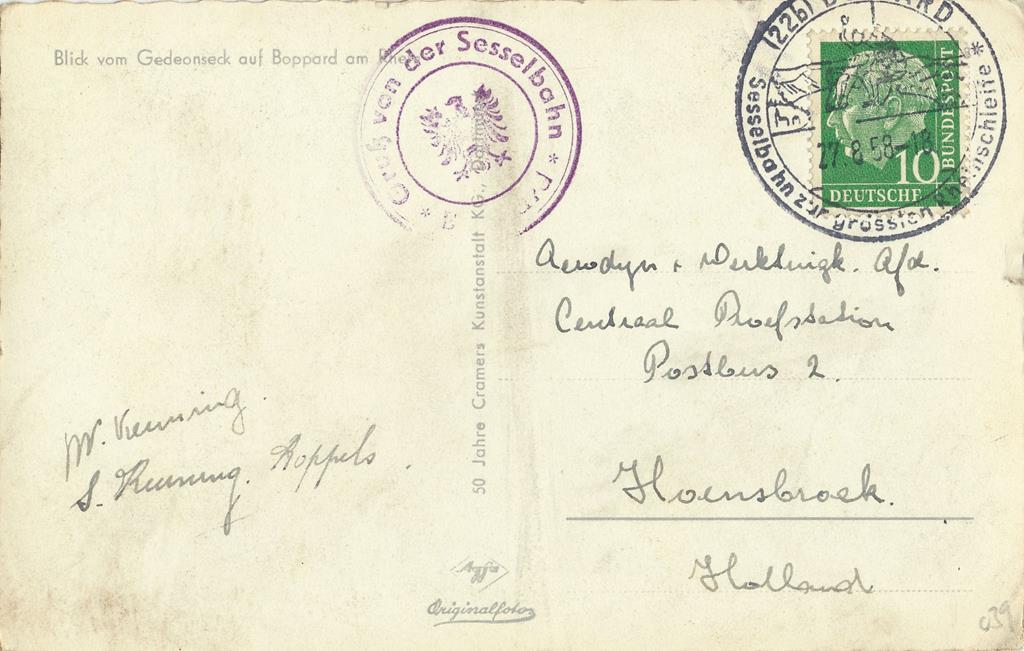 Blick vom Gedeonseck auf Boppard am Rhein
* Gruß von der Sesselbahn *
(22b) BOPPARD
Sesselbahn zur grössten Rheinschleife *
27.8.58-18
10
DEUTSCHE
BUNDESPOST
Centraal Proefstation
Postbus 2.
Hoensbroek.
Holland
S. Keuning. Koppels.
50 Jahre Cramers Kunstanstalt KG., Dortmund
Agfa
Originalfoto
039